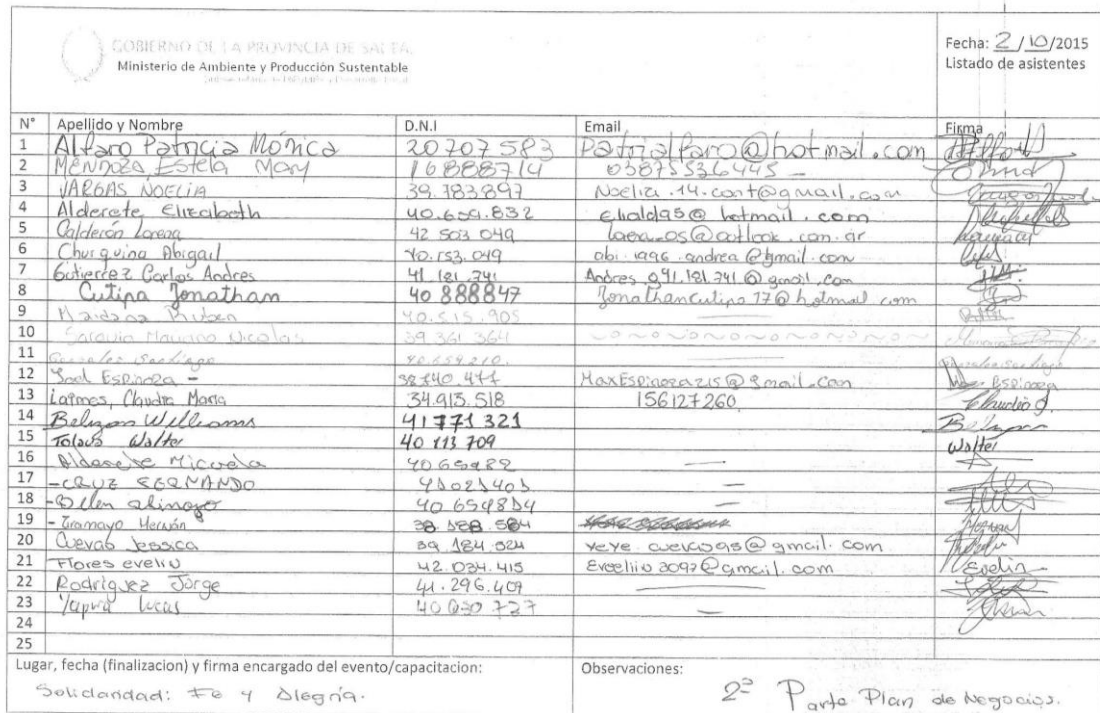 GOBIERNO DE LA PROVINCIA DE SALTA
Ministerio de Ambiente y Producción Sustentable
Fecha: 2/10/2015
Listado de asistentes
N° Apellido y Nombre D.N.I Email Firma
1 Alfaro Patricia Mónica 20707583 Patrialfaro@hotmail.com
2 MENDOZA Estela Mary 16888714 03875536445 -
3 VARGAS NOELIA 39.783897 Noelia.14.cont@gmail.com
4 Alderete Elizabeth 40.659.832 elialda95@hotmail.com
5 Calderón Lorena 42 503 049
6 Churquina Abigail 40.153.049 abi.1996.andrea@gmail.com
7 Gutierrez Carlos Andres 41 181 741 Andres.941.181.741@gmail.com
8 Cutipa Jonathan 40 888847 Jonathancutipa17@hotmail.com
9 Ruben 40.515.905
10 Saravia Mariano Nicolas 39 361 364
11 Gonzales Santiago 40659210. Gonzales Santiago
12 Joel ESPinoza - MaxEspinoza215@gmail.com Espinoza
13 Laimes, Claudia Maria 34.913.518 156127260
14 Belizan Williams 41771321
15 Walter 40 113 709 Walter
16 Alderete Micaela 4065982
17 - CRUZ FERNANDO 41021401
18 - Belen 40 659834
19 - Tramayo Hernán 38 588 584
20 Cuevas Jessica 39 184 024 yeye.cuevas95@gmail.com
21 Flores evelin 42.034.415 Eveeliiu3097@gmail.com Evelin
22 Rodríguez Jorge 41.296.409
23 Yapura Lucas 40 030 727
24
25
Lugar, fecha (finalizacion) y firma encargado del evento/capacitacion:
Solidaridad: Fe y Alegría.
Observaciones:
2ª Parte Plan de Negocios.